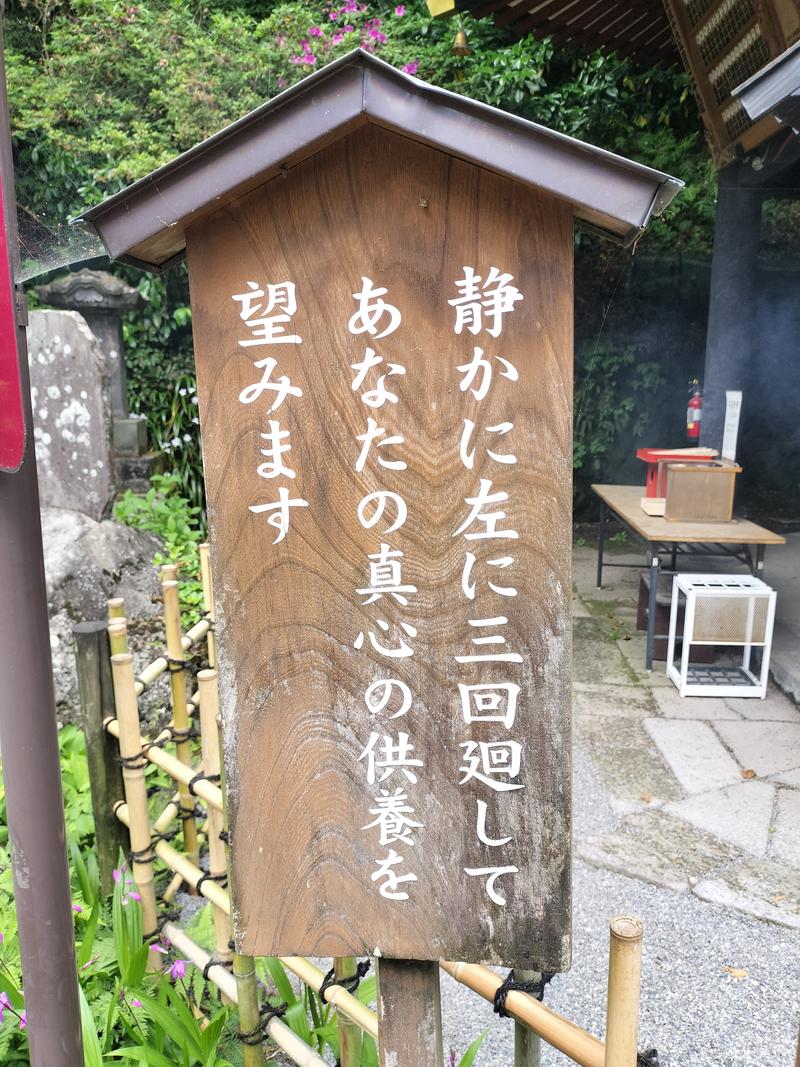 静かに左に三回廻して
あなたの真心の供養を
望みます